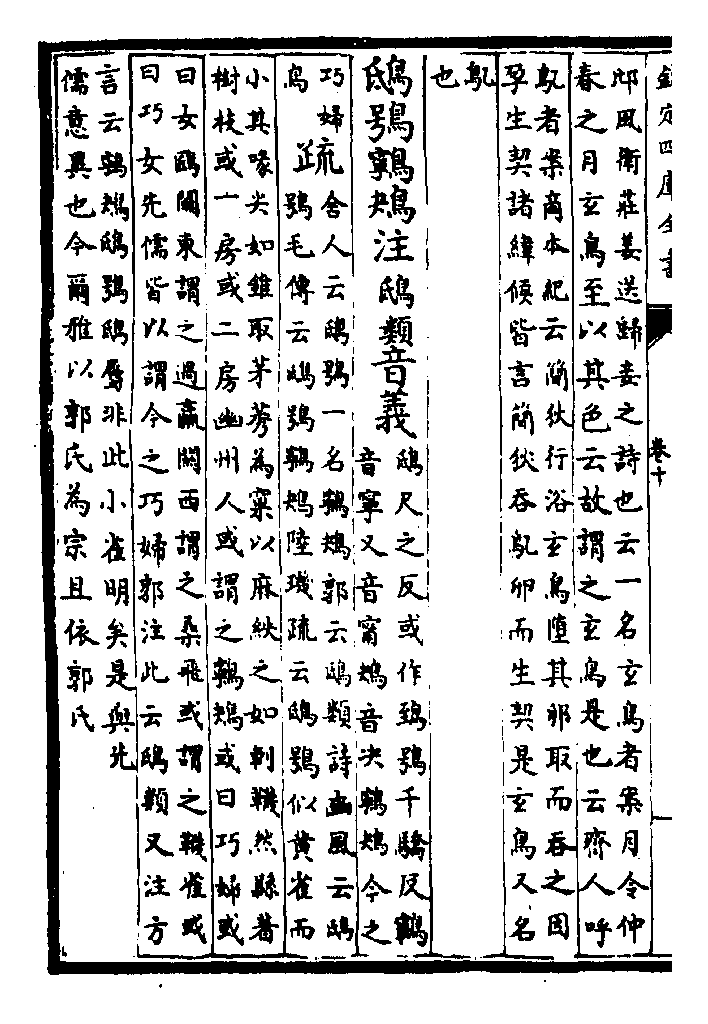 欽定四庫全書
卷十
邶風衛莊姜送歸妾之詩也云一名玄鳥者案月令仲
春之月玄鳥至以其色云故謂之玄鳥是也云齊人呼
鳦者案商本紀云簡狄行浴玄鳥墮其卵取而吞之因
孕生契諸緯候皆言簡狄吞鳦卵而生契是玄鳥又名
鳦
也
鴟鴞鸋鴂注鴟類音義
鴟尺之反或作鵄鴞千驕反鸋
音寧又音甯鴂音决鸋鴂今之
巧婦
鳥
疏
舍人云鴟鴞一名鸋鴂郭云鴟類詩豳風云鴟
鴞毛傳云鴟鴞鸋鴂陸璣疏云鴟鴞似黃雀而
小其喙尖如錐取茅莠為窠以麻紩之如刺韈然縣著
樹枝或一房或二房幽州人或謂之鸋鴂或曰巧婦或
曰女鷗關東謂之過鸁關西謂之桑飛或謂之韈雀或
曰巧女先儒皆以謂今之巧婦郭注此云鴟類又注方
言云鸋鴂鴟鴞鴟屬非此小雀明矣是與先
儒意異也今爾雅以郭氏為宗且依郭氏